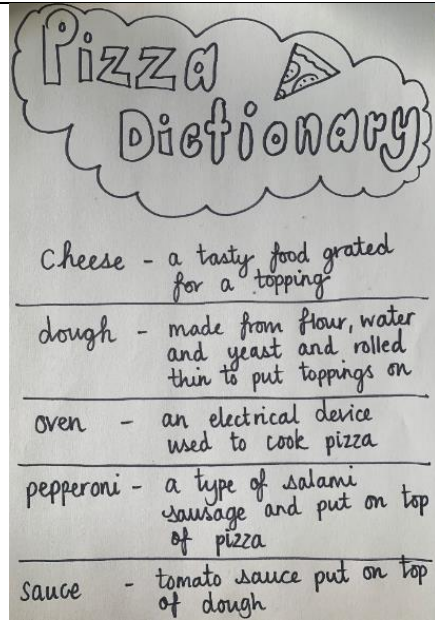 Pizza
Dictionary
cheese - a tasty food grated
for a topping
dough - made from flour, water
and yeast and rolled
thin to put toppings on
oven - an electrical device
used to cook pizza
pepperoni - a type of salami
sausage and put on top
of pizza
sauce - tomato sauce put on top
of dough